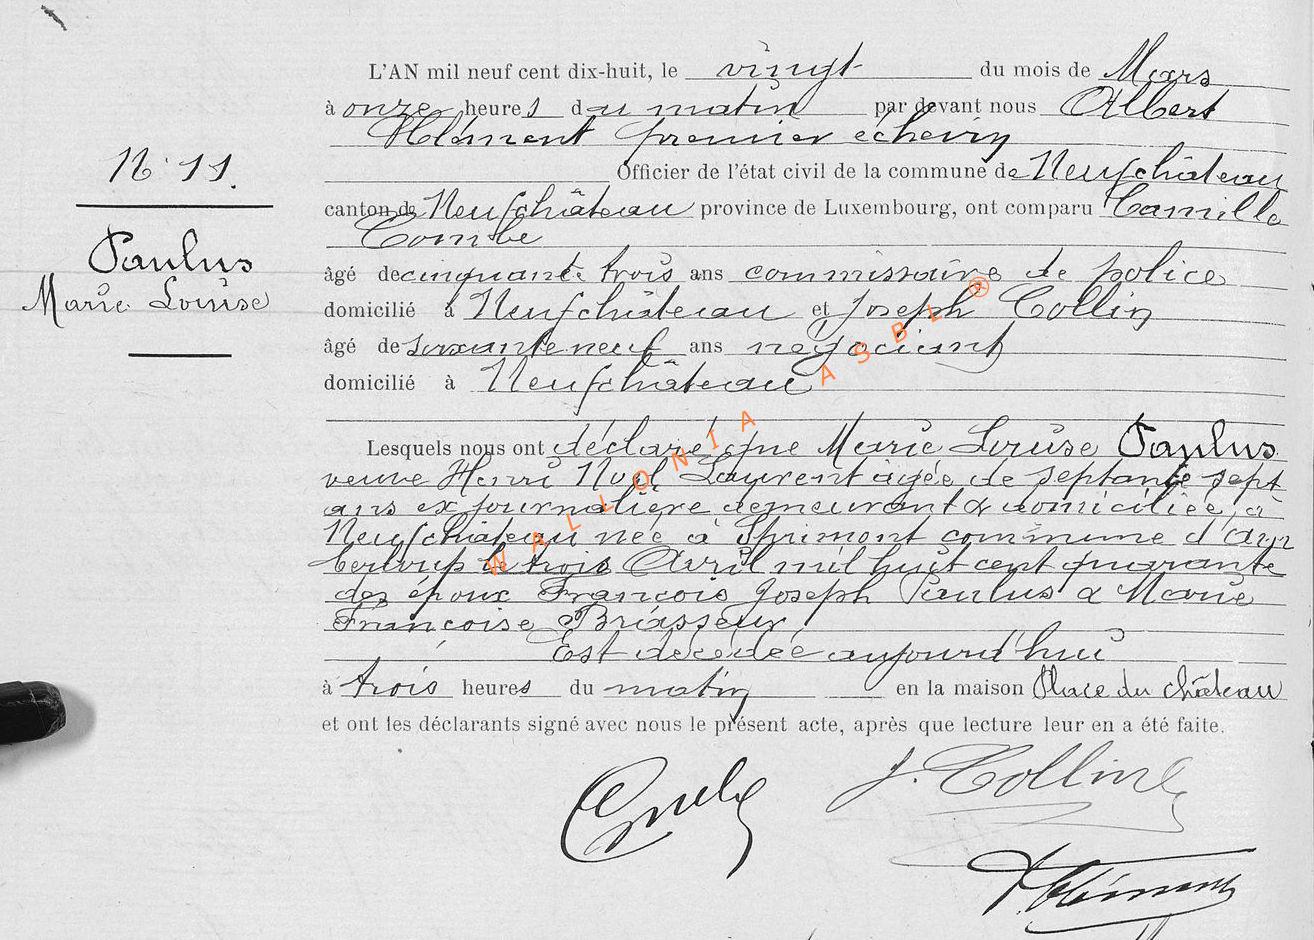 L'AN mil neuf cent dix-huit, le vingt du mois de Mars
à onze heures du matin par devant nous Albert
Clément premier échevin
Officier de l'état civil de la commune de Neufchâteau
canton de Neufchâteau province de Luxembourg, ont comparu Camille
Combe
âgé de cinquante trois ans commissaire de police
domicilié à Neufchâteau et Joseph Collin
âgé de soixante neuf ans négociant
domicilié à Neufchâteau
Lesquels nous ont déclaré que Marie Louise Paulus
veuve Henri Noël Laurent agée de septante sept
ans ex journalière demeurant & domiciliée à
Neufchâteau née à Sprimont commune d'Am
berloup le trois Avril mil huit cent quarante
des époux François Joseph Paulus & Marie
Françoise Briasseur
Est décédée aujourd'hui
à trois heures du matin en la maison Place du château
et ont les déclarants signé avec nous le présent acte, après que lecture leur en a été faite.
N° 11.
Paulus
Marie Louise
J. Collin
A. Clément
WALLONIA ASBL ®